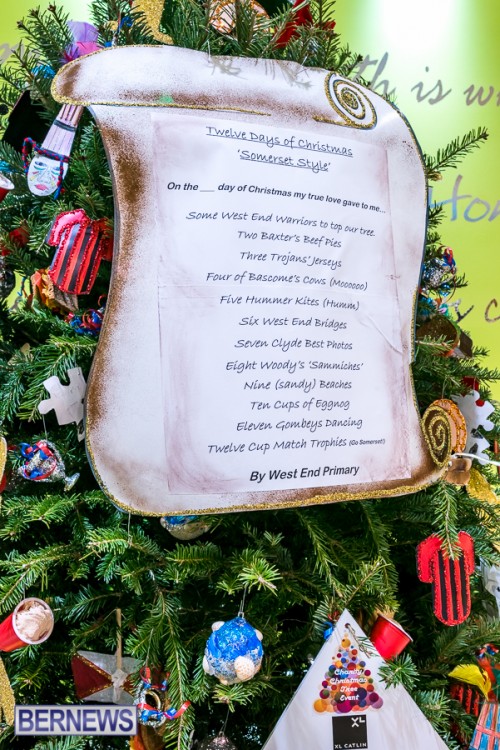 th is w
Hon
y c
Twelve Days of Christmas
'Somerset Style'
On the ___ day of Christmas my true love gave to me...
Some West End Warriors to top our tree.
Two Baxter's Beef Pies
Three Trojans' Jerseys
Four of Bascome's Cows (Moooooo)
Five Hummer Kites (Humm)
Six West End Bridges
Seven Clyde Best Photos
Eight Woody's 'Sammiches'
Nine (sandy) Beaches
Ten Cups of Eggnog
Eleven Gombeys Dancing
Twelve Cup Match Trophies (Go Somerset!)
By West End Primary
Charity
Christmas
Tree
Event
XL
XL CATLIN
BERNEWS